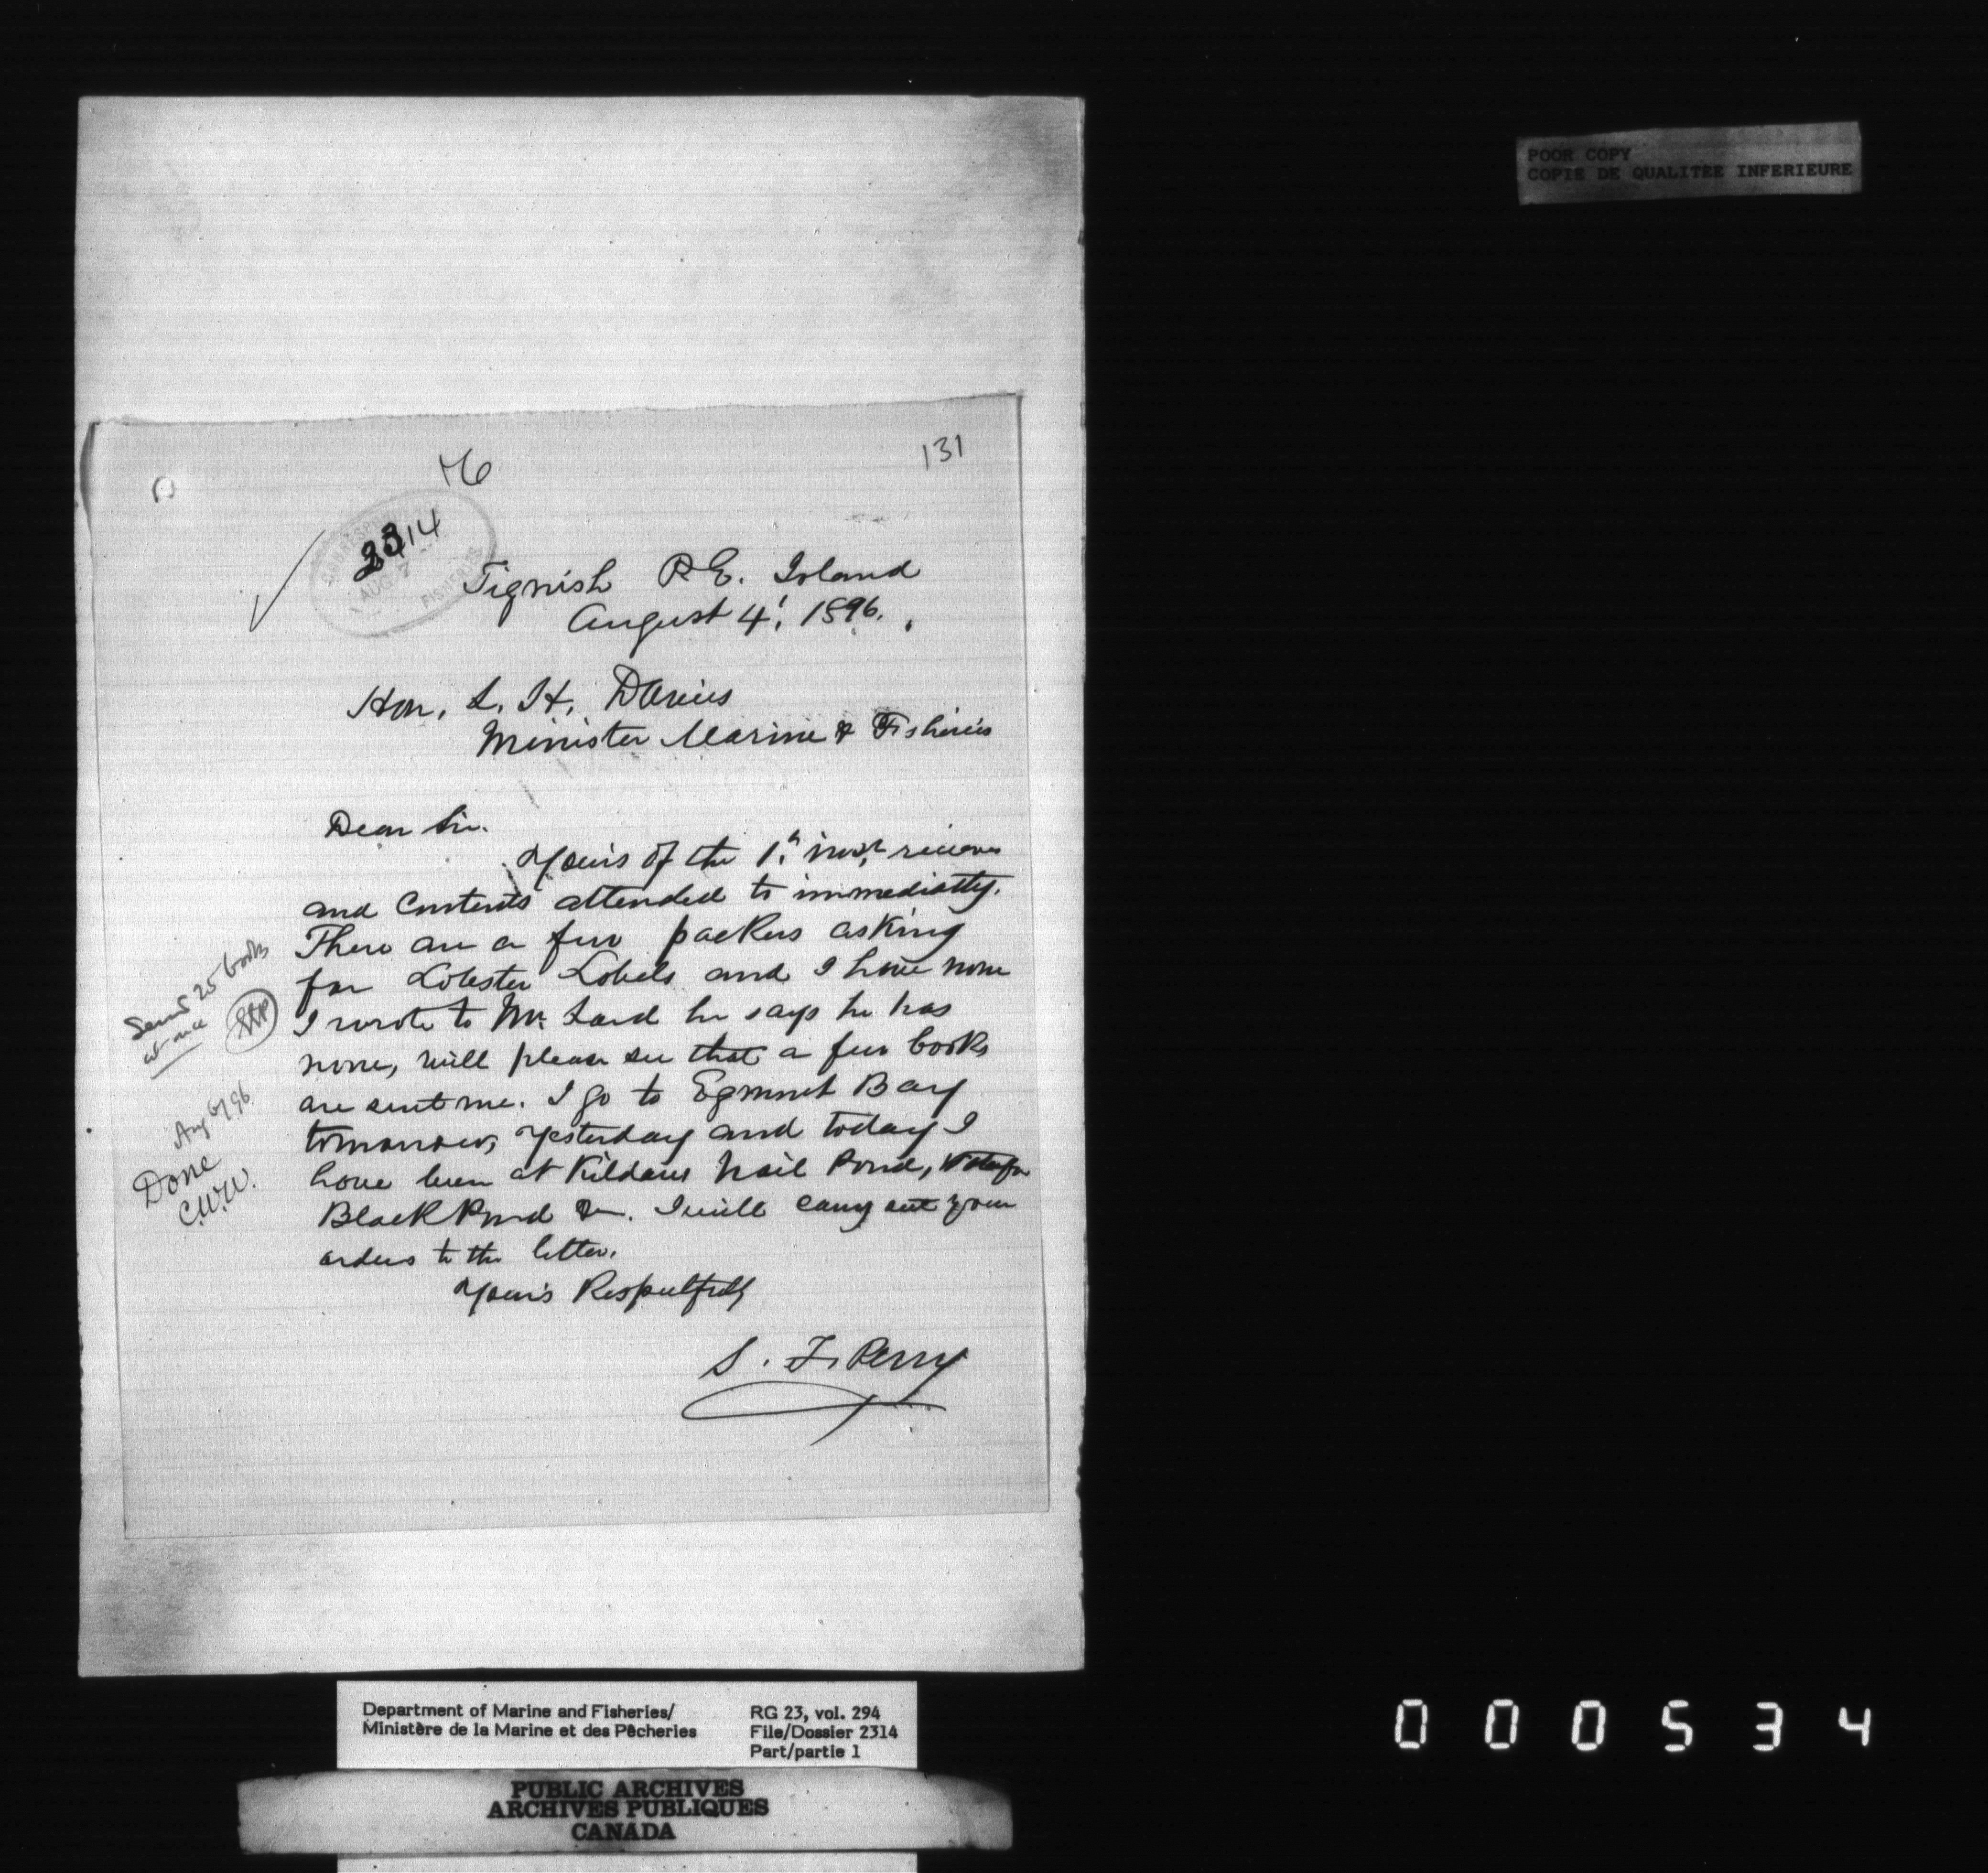 POOR COPY
COPIE DE QUALITEE INFERIEURE
76
131
2314
CORRESPONDENCE
AUG 7
FISHERIES
Tignish P.E. Island
August 4! 1896.
Hon. L. H. Davies
Minister Marine & Fisheries
Dear Sir.
Yours of the 1st inst,
and contents attended to immediatly.
There are a few packers asking
for Lobster Labels and I have none
I wrote to Mr. Lard he says he has
none, will please see that a few books
are sent me. I go to Egmont Bay
tomorrow, Yesterday and today I
have been at Kildare Nail Pond,
Black Pond &c. I will carry out your
orders to the letter.
Yours Respectfully
S. F. Perry
Send 25 books
at once
Aug 6/96
Done
C.W.W.
Department of Marine and Fisheries/
Ministère de la Marine et des Pêcheries
RG 23, vol. 294
File/Dossier 2314
Part/partie 1
PUBLIC ARCHIVES
ARCHIVES PUBLIQUES
CANADA
000534